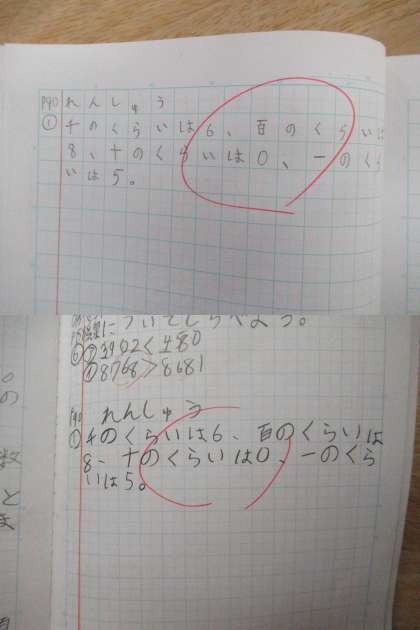 P90 れんしゅう
① 千のくらいは6、百のくらいは
8、十のくらいは0、一のくら
いは5。
ついてしらべよう。
⑦3902<480
⑦8768>8681
P90 れんしゅう
① 千のくらいは6、百のくらいは
8、十のくらいは0、一のくら
いは5。
の
数
と
ま